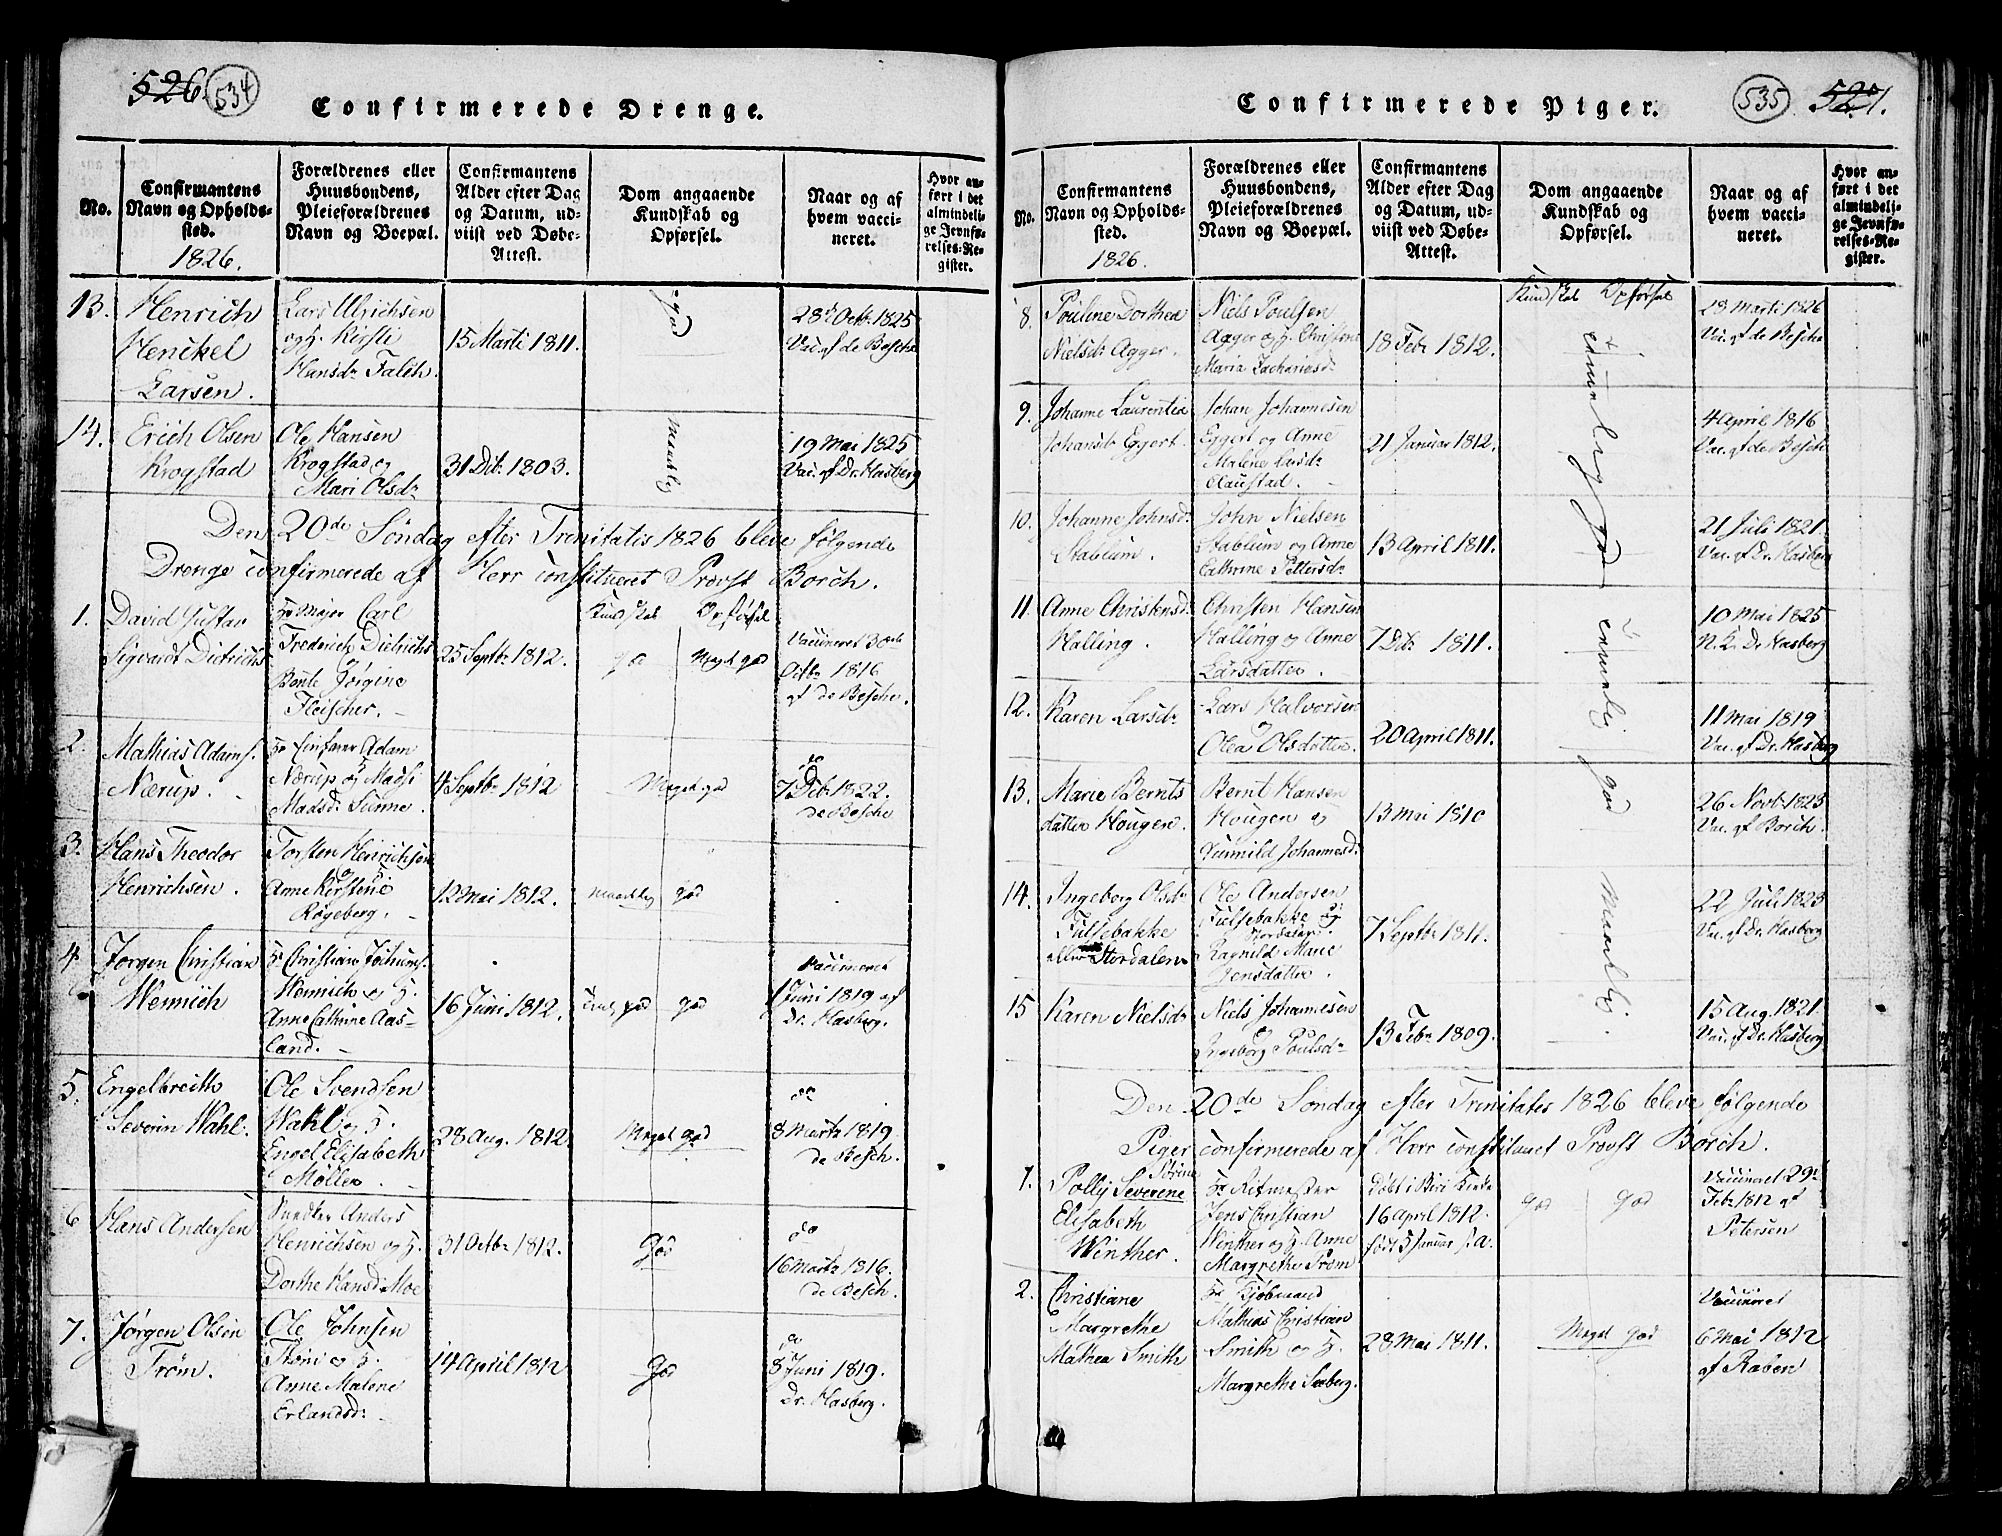 526. 534
Confirmerede Drenge.
No.
Confirmantens Navn og Opholdssted.
1826.
Forældrenes eller Huusbondens, Pleieforældrenes Navn og Boepæl.
Confirmantens Alder efter Dag og Datum, udviist ved Døbe-Attest.
Dom angaaende Kundskab og Opførsel.
Naar og af hvem vaccineret.
Hvor anført i det almindelige Jevnførelses-Register.
13. Henrich Henckel Larsen.
Lars Ulrichsen og H. Kirsti Hansdr
15 Marti 1811.
god
28de Octbr 1825 Vac. af de Besche
14. Erich Olsen Krogstad
Ole Hansen Krogstad og Mari Olsdr
31 Dcbr 1803.
Maadelig
19 Mai 1825 Vac. af Dr. Hasberg
Den 20de Søndag efter Trinitatis 1826 bleve følgende
Drenge confirmerede af Herr constitueret Provst Borch.
Kundskab Opførsel
1. David Gustav Sigvardt Dietrichs
Hr Major Carl Frederich Dietrichs Bente Jørgine Fleischer.
25 Septbr 1812.
god Meget god
Vaccineret Octbr 1816 af de Besche.
2. Mathias Adams. Nærup.
Adam Nærup og Madsd.
4 Septbr 1812
Meget god
do 7 Dcbr 1822. de Besche
3. Hans Theodor Henrichsen.
Torsten Henrichsen og H. Anne Kerstene Røgeberg.
12 Mai 1812.
maadelig god
4. Jørgen Christian Wennich
Hr Christian Wennich og H. Anne Cathrine Aasland.
16 Juni 1812.
god god
Vaccineret 1 Juni 1819 af Dr. Hasberg.
5. Engelbreith Severin Wahl.
Ole Svendsen Wahl og H. Engel Elisabeth Møller.
28 Aug. 1812
Meget god
do 8 Martz 1819. de Besch.
6 Hans Andersen
Anders Henrichsen og H. Dorthe Hansdr Moe
31 Octbr 1812.
God
do 16 Martz 1816. de Besch.
7. Jørgen Olsen Trøm.
Ole Johnsen Trøm og H. Anne Malene Erlandsd:
14 April 1812
God
do 8 Juni 1819. Dr. Hasberg.
Confirmerede Piger.
535 527.
No.
Confirmantens Navn og Opholdssted.
1826.
Forældrenes eller Huusbondens, Pleieforældrenes Navn og Boepæl.
Confirmantens Alder efter Dag og Datum, udviist ved Døbe-Attest.
Dom angaaende Kundskab og Opførsel.
Naar og af hvem vaccineret.
Hvor anført i det almindelige Jevnførelses-Register.
Kundskab Opførsel
8. Pouline Dorthea Nielsdr Agger.
Niels Poulsen Agger og H. Christine Maria Zachariesd.
18 Febr 1812.
28 Marti 1826 Vac. af de Besche
9. Johanne Laurentia Johansdr Eggert.
Johan Johannesen Eggert og Anne Malene Larsdr Claustad.
21 Januar 1812.
4 April 1816 Vac. af de Besche
temmelig god
10. Johanne Johnsd: Stablum.
John Nielsen Stablum og Anne Cathrine Pettersdr
13 April 1811.
21 Juli 1821. Vac. af Dr. Hasberg
11. Anne Christensd. Halling.
Christen Hansen Halling og Anne Larsdatter.
7 Dcbr 1811.
10 Mai 1825 N. K. Dr. Hasberg
12. Karen Larsdr
Lars Halvorsen og Olea Olsdatter.
20 April 1811.
temmelig god
11 Mai 1819 Vac. af Dr. Hasberg
13. Marie Bernts datter Hougen.
Bernt Hansen Hougen og Gunnild Johannesd:
13 Mai 1810
26 Novbr 1823 Vac. af Borch.
14. Ingeborg Olsdr Fulsebakke eller Stordalen
Ole Andersen Fulsebakke og Stordalen. Ragnild Marie Jensdatter.
7 Septbr 1811.
Maadelig.
22 Juli 1823 Vac. af Dr. Hasberg
15 Karen Nielsdr
Niels Johannesen og Ingeborg Poulsdr
13 Febr 1809.
15 Aug. 1821. Vac. af Dr. Hasberg
Den 20de Søndag efter Trinitatis 1826 bleve følgende
Piger confirmerede af Herr constitueret Provst Borch.
1. Polly Severene Elisabeth Winther.
Hr Ritmester Jens Christian Winther og H. Anne Margrethe Trøm
døbt i Biri Kirke 16 April 1812. født 5 Januar s. a.
God God
Vaccineret 29de Febr 1812 af Petersen
2. Christiane Margrethe Mathea Smith
Hr Kjøbmand Mathias Christian Smith og H. Margrethe Seeberg.
28 Mai 1811.
Meget God
Vaccineret 6 Mai 1812 af Raben